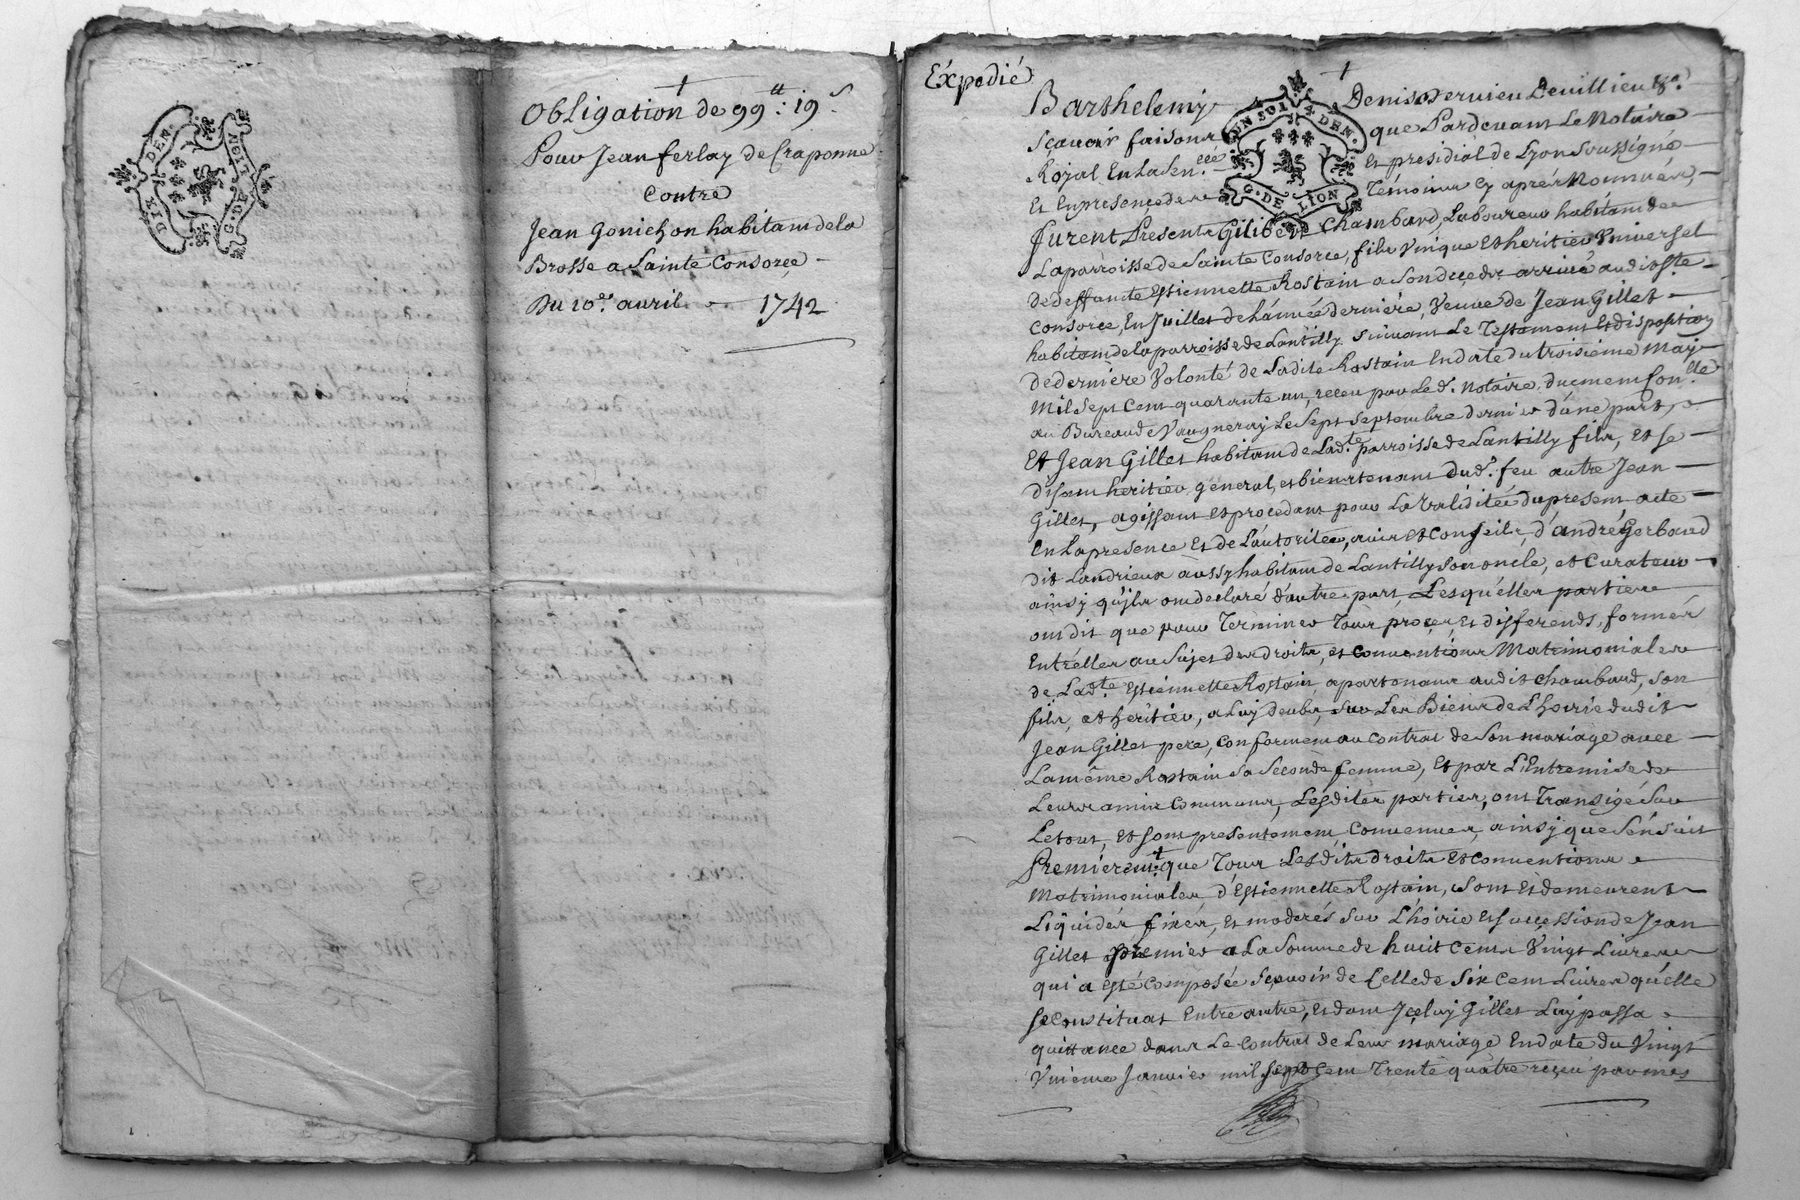 DIX DEN.
G. DE LION
Obligation de 99 tt: 19 s
Pour Jean ferlay de Craponne
Contre
Jean Gonichon habitant de la
Brosse a Sainte Consorce
Du 10e. avril 1742
Expedié
UN SOL 4 DEN.
G. DE LION
Barthelemy Denis Dervieu De villieu
Sçavoir faisons que Pardevant Le Notaire
Royal En La Sen.ccé et presidial de Lyon Soussigné
Et En presence des Témoins cy aprés Nommés,
furent Présents Gilibert Chambard, Laboureur habitant de
La parroisse de Sainte Consorce, fils Vnique Et heritier Vniversel
de deffunte Estiennette Rostain a Son decedz arrivé audit Ste
Consorce, En Juillet de L'année derniére, Veuve de Jean Gillet
habitant de la parroisse de Lantilly Suivant Le Testament Et disposition
De derniere Volonté de Ladite Rostain En date du troisiéme May
Mil Sept Cent quarante un, receu par Led. Notaire, duement Con.llé
au Bureau de Vaugneray Le Sept Septembre dernier d'une part,
Et Jean Gillet habitant de Lad.te parroisse de Lantilly fils, Et Se
disant heritier, général, et bientenant dud.t feu autre Jean
Gillet, agissant Et procedant pour La validitée du present acte
En La presence Et de L'autoritée, avis et Conseils, d'andré Gerbaud
dit Landrieux aussy habitant de Lantilly Son oncle, et Curateur
ainsy qu'jls ont declaré d'autre part, Lesquelles parties
ont dit que pour Terminer Tous procés, Et differends, formés
Entrelles au Sujet des droits, et Conventions Matrimoniales
de Lad.te Estiennette Rostain, apartenans audit Chambard, Son
fils, et heritier, a Luy deubs, Sur Les Biens de L'hoirie dudit
Jean Gillet pere, Conformement au Contrat de Son mariage avec
La même Rostain Sa Seconde femme, Et par L'Entremise de
Leurs amis Communs, Lesdites parties, ont Transigé Sur
Le tout, Et Sont presentement Convenues, ainsy que S'énsuit
Premiérem.t que Tous Lesdits droits Et Conventions
Matrimoniales, d'Estiennette Rostain, Sont Et demeurent
Liquidés fixés, Et moderés Sur L'hoirie Et Succession de Jean
Gillet premier a La Somme de huit Cents Vingt Livres
qui a Esté Composée Sçavoir de Celle de Six Cent Livres qu'elle
Se Constituat Entre autre, Et dont Jçeluy Gillet Luy passa
quittance dans Le Contrat de Leur mariage En date du Vingt
Vnieme Janvier mil Sept Cent Trente quatre reçeu par mes